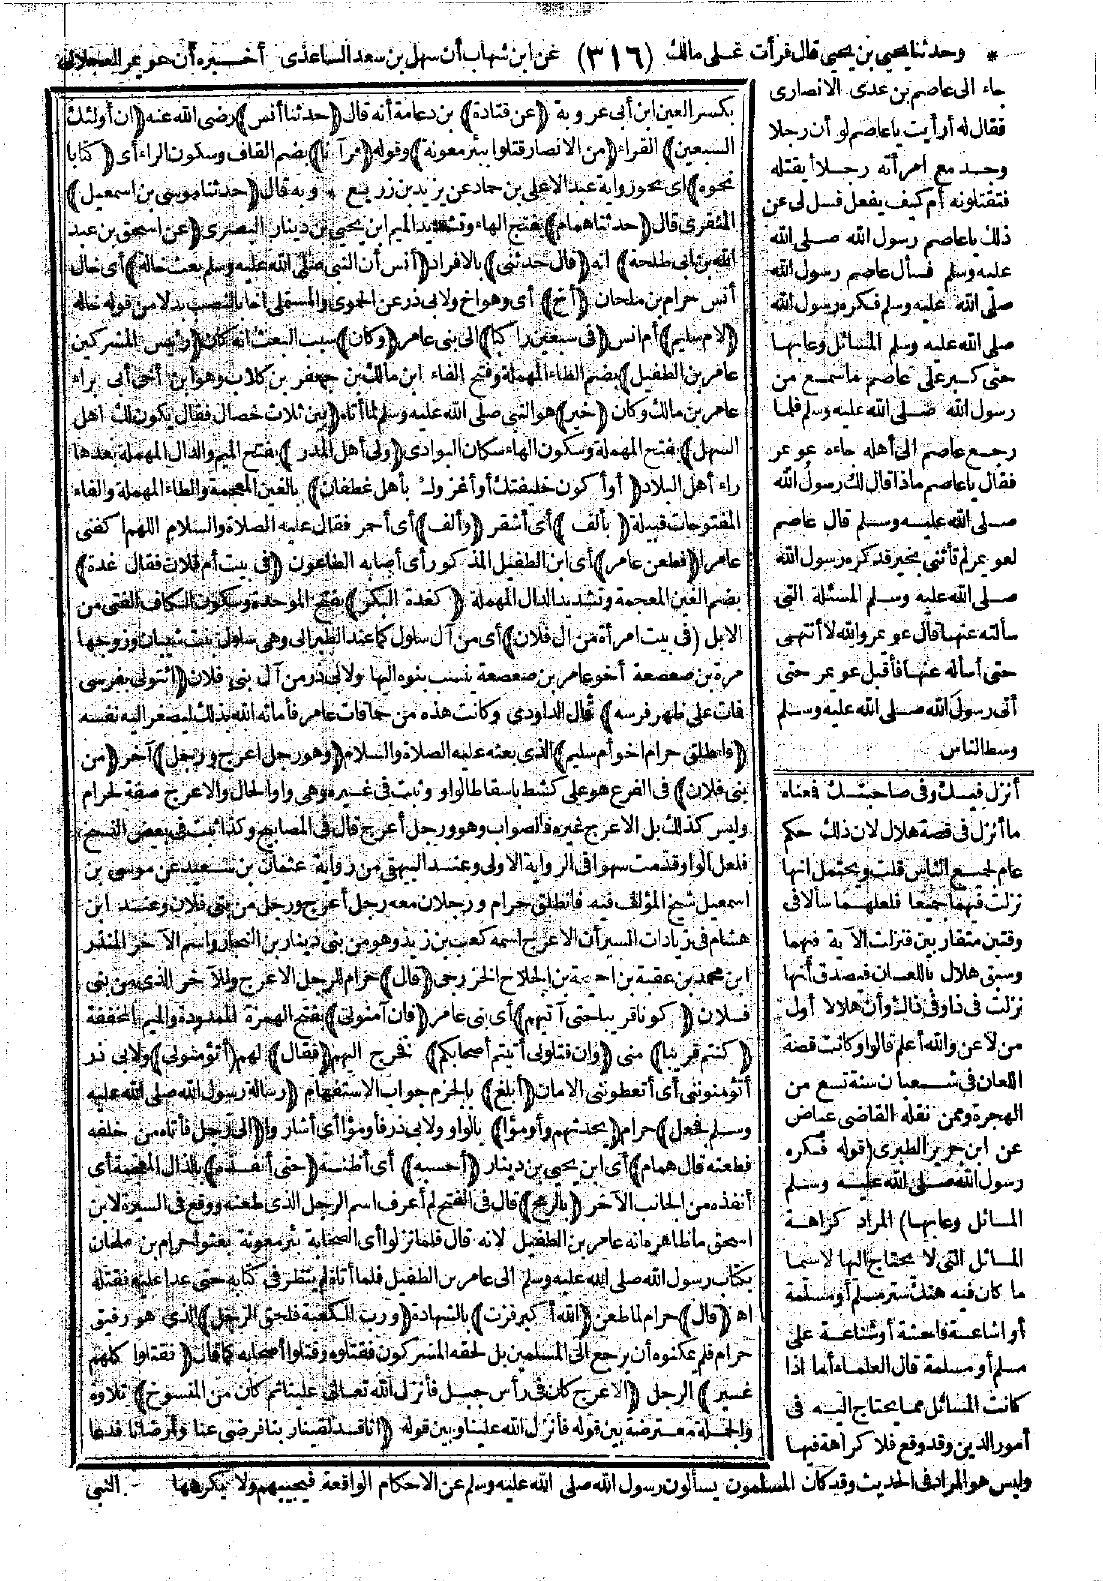 * وحدثنا يحيى بن يحيى قال قرأت على مالك (٣١٦) عن ابن شهاب أن سهل بن سعد الساعدى أخبره أن عويمر العجلانى
جاء الى عاصم بن عدى الانصارى
فقال له أرأيت يا عاصم لو أن رجلا
وجد مع امرأته رجلا أيقتله
فتقتلونه أم كيف يفعل فسل لى عن
ذلك يا عاصم رسول الله صلى الله
عليه وسلم فسأل عاصم رسول الله
صلى الله عليه وسلم فكره رسول الله
صلى الله عليه وسلم المسائل وعابها
حتى كبر على عاصم ما سمع من
رسول الله صلى الله عليه وسلم فلما
رجع عاصم الى أهله جاءه عويمر
فقال يا عاصم ماذا قال لك رسول الله
صلى الله عليه وسلم قال عاصم
لعويمر لم تأتنى بخير قد كره رسول الله
صلى الله عليه وسلم المسئلة التى
سألته عنها قال عويمر والله لا أنتهى
حتى أسأله عنها فأقبل عويمر حتى
أتى رسول الله صلى الله عليه وسلم
وسط الناس
أنزل فيك وفى صاحبتك فعناه
ما أنزل فى قصة هلال لان ذلك حكم
عام لجميع الناس قلت ويحتمل انها
نزلت فيهما جميعا فلعلهما سألا فى
وقتين متقاربين فنزلت الآية فيهما
وسبق هلال باللعان فيصدق أنها
نزلت فى ذا وفى ذاك وأن هلالا أول
من لاعن والله أعلم قالوا وكانت قصة
اللعان فى شعبان سنة تسع من
الهجرة وممن نقله القاضى عياض
عن ابن جرير الطبرى (قوله فكره
رسول الله صلى الله عليه وسلم
المسائل وعابها) المراد كراهة
المسائل التى لا يحتاج اليها لاسيما
ما كان فيه هتك ستر مسلم أو مسلمة
أو اشاعة فاحشة أو شناعة على
مسلم أو مسلمة قال العلماء أما اذا
كانت المسائل مما يحتاج اليه فى
أمور الدين وقد وقع فلا كراهة فيها
بكسر العين ابن أبى عروبة (عن قتادة) بن دعامة أنه قال (حدثنا أنس) رضى الله عنه (ان أولئك
السبعين) القراء (من الانصار قتلوا ببئر معونة) وقوله (قرآنا) بضم القاف وسكون الراء أى (كتابا
نحوه) أى نحو رواية عبد الاعلى بن حماد عن يزيد بن زريع * وبه قال (حدثنا موسى بن اسمعيل)
المنقرى قال (حدثنا همام) بفتح الهاء وتشديد الميم ابن يحيى بن دينار البصرى (عن اسحق بن عبد
الله بن أبى طلحة) انه (قال حدثنى) بالافراد (أنس أن النبى صلى الله عليه وسلم بعث خاله) أى خال
أنس حرام بن ملحان (أخ) أى وهو أخ ولابى ذر عن الحموى والمستملى أخا بالنصب بدلا من قوله خاله
(لام سليم) أم انس (فى سبعين راكبا) الى بنى عامر (وكان) سبب البعث انه كان (رئيس المشركين
عامر بن الطفيل) بضم الطاء المهملة وفتح الفاء ابن مالك بن جعفر بن كلاب وهو ابن أخى أبى براء
عامر بن مالك وكان (خير) هو النبى صلى الله عليه وسلم لما أتاه (بين ثلاث خصال فقال يكون لك اهل
السهل) بفتح المهملة وسكون الهاء سكان البوادى (ولى أهل المدر) بفتح الميم والدال المهملة بعدها
راء أهل البلاد (أو أكون خليفتك أو أغزوك بأهل غطفان) بالغين المعجمة والطاء المهملة والفاء
المفتوحات قبيلة (بألف) أى أشقر (وألف) أى أحمر فقال عليه الصلاة والسلام اللهم اكفنى
عامرا (فطعن عامر) أى ابن الطفيل المذكور أى أصابه الطاعون (فى بيت أم فلان فقال غدة)
بضم الغين المعجمة وتشديد الدال المهملة (كغدة البكر) بفتح الموحدة وسكون الكاف الفتى من
الابل (فى بيت امرأة من آل فلان) أى من آل سلول كما عند الطبرانى وهى سلول بنت شيبان وزوجها
مرة بن صعصعة أخو عامر بن صعصعة ينسب بنوه اليها ولابى ذر من آل بنى فلان (ائتونى بفرسى
فات على ظهر فرسه) قال الداودى وكانت هذه من حماقات عامر فأماته الله بذلك ليصغر اليه نفسه
(فانطلق حرام اخو أم سليم) الذى بعثه عليه الصلاة والسلام (وهو رجل اعرج ورجل) آخر (من
بنى فلان) فى الفرع هو على كشط باسقاط الواو وثبت فى غيره وهى واو الحال والاعرج صفة لحرام
وليس كذلك بل الاعرج غيره فالصواب وهو ورجل أعرج قال فى المصابيح وكذا ثبت فى بعض النسخ
فلعل الواو قدمت سهوا فى الرواية الاولى وعند البيهقى من رواية عثمان بن سعيد عن موسى بن
اسمعيل شيخ المؤلف فيه فانطلق حرام ورجلان معه رجل أعرج ورجل من بنى فلان وعند ابن
هشام فى زيادات السير أن الاعرج اسمه كعب بن زيد وهو من بنى دينار بن النجار واسم الآخر المنذر
ابن محمد بن عقبة بن احيحة بن الجلاح الخزرجى (قال) حرام للرجل الاعرج وللآخر الذى من بنى
فلان (كونا قريبا حتى آتيهم) أى بنى عامر (فان آمنونى) بفتح الهمزة الممدودة والميم المخففة
(كنتم قريبا) منى (وان قتلونى أتيتم أصحابكم) فخرج اليهم (فقال) لهم (أتؤمنونى) ولابى ذر
أتؤمنوننى أى أتعطوننى الامان (أبلغ) بالجزم جواب الاستفهام (رسالة رسول الله صلى الله عليه
وسلم فجعل) حرام (يحدثهم وأومؤا) بالواو ولابى ذر فأومؤا أى أشاروا (الى رجل فأتاه من خلفه
فطعنه قال همام) أى ابن يحيى بن دينار (أحسبه) أى أظنه (حتى أنفذه) بالذال المعجمة أى
أنفذه من الجانب الآخر (بالرمح) قال فى الفتح لم أعرف اسم الرجل الذى طعنه ووقع فى السيرة لابن
اسحق ما ظاهره انه عامر بن الطفيل لانه قال فلما نزلوا أى الصحابة بئر معونة بعثوا حرام بن ملحان
بكتاب رسول الله صلى الله عليه وسلم الى عامر بن الطفيل فلما أتاه لم ينظر فى كتابه حتى عدا عليه فقتله
اه (قال) حرام لما طعن (الله أكبر فزت) بالشهادة (ورب الكعبة فلحق الرجل) الذى هو رفيق
حرام فلم يمكنوه أن يرجع الى المسلمين بل لحقه المشركون فقتلوه وقتلوا أصحابه كما قال (فقتلوا كلهم
غير) الرجل (الاعرج كان فى رأس جبل فأنزل الله تعالى علينا ثم كان من المنسوخ) تلاوة
والجملة معترضة بين قوله فأنزل الله علينا وبين قوله (انا قد لقينا ربنا فرضى عنا وأرضانا فدعا
وليس هو المراد فى الحديث وقد كان المسلمون يسألون رسول الله صلى الله عليه وسلم عن الاحكام الواقعة فيجيبهم ولا يكرهها النبى